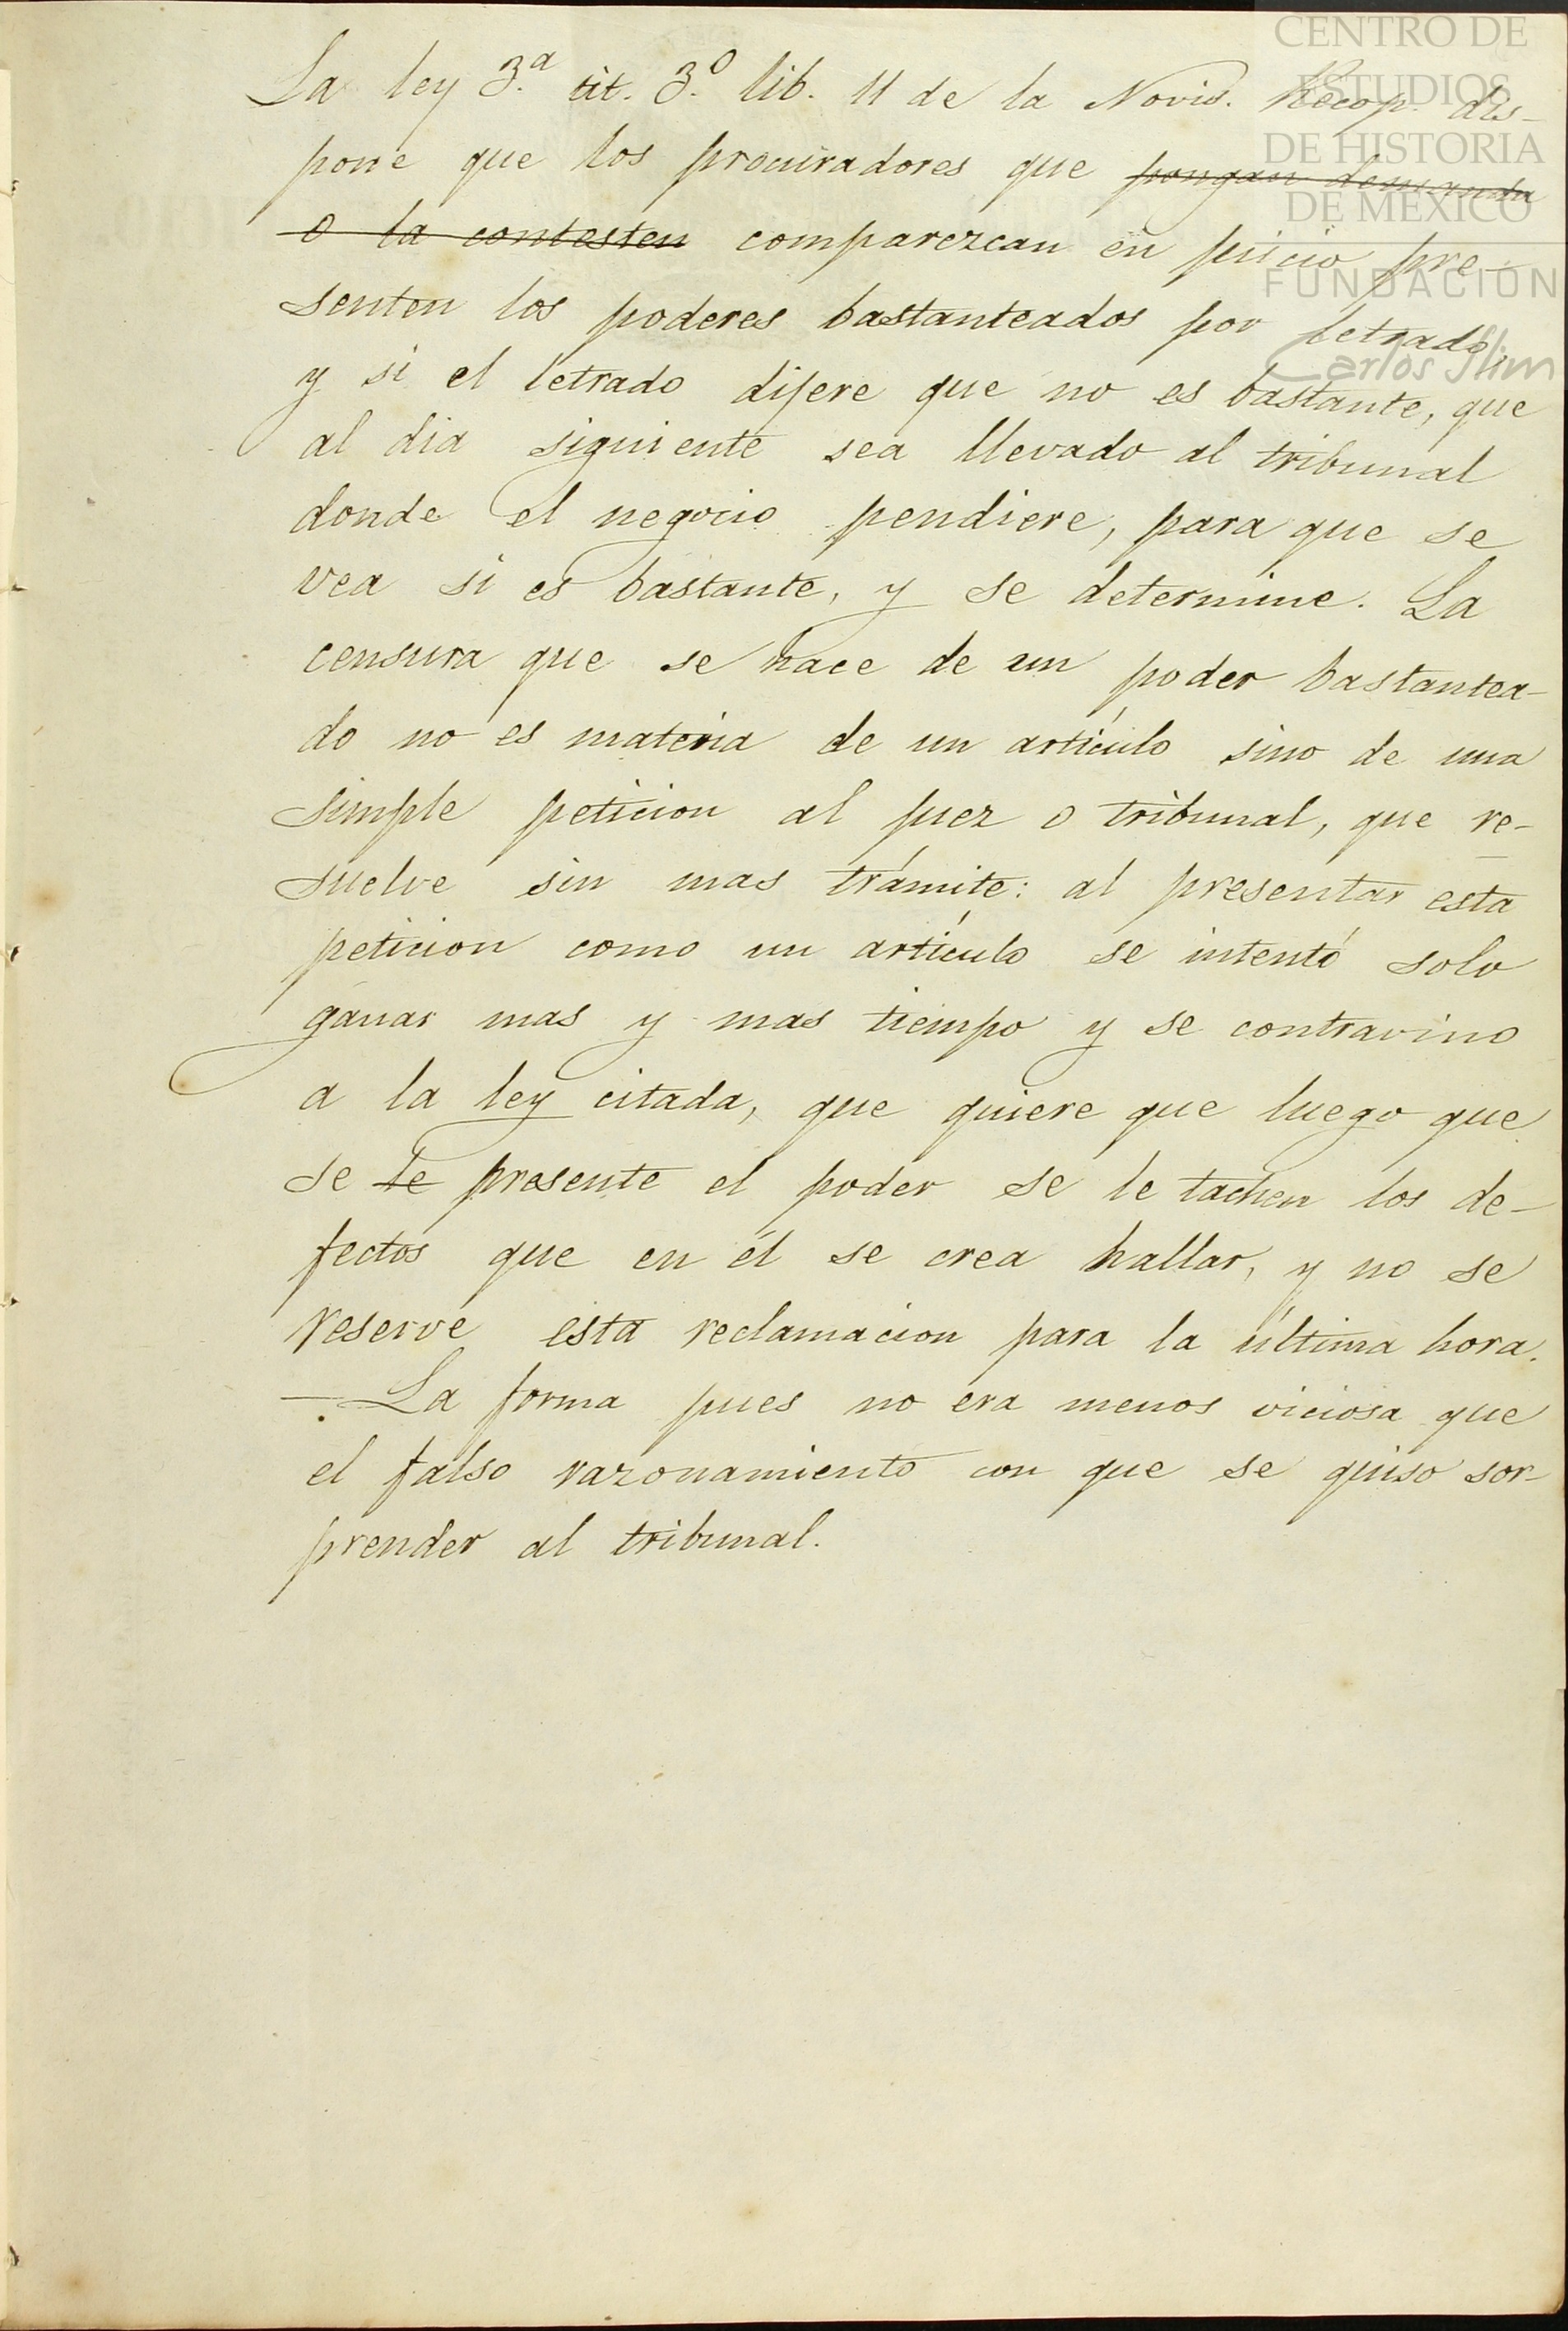 La ley 3.ª tit. 3.º lib. 11 de la Novis. Recop. dis-
pone que los procuradores que pongan demanda
o la contesten comparezcan en juicio pre-
senten los poderes bastanteados por letrado,
y si el letrado dijere que no es bastante, que
al dia siguiente sea llevado al tribunal
donde el negocio pendiere, para que se
vea si es bastante, y se determine. La
censura que se hace de un poder bastantea-
do no es materia de un artículo sino de una
simple peticion al juez o tribunal, que re-
suelve sin mas trámite: al presentar esta
peticion como un artículo se intentó solo
ganar mas y mas tiempo y se contravino
a la ley citada, que quiere que luego que
se le presente el poder se le tachen los de-
fectos que en él se crea hallar, y no se
reserve esta reclamacion para la última hora.
—La forma pues no era menos viciosa que
el falso razonamiento con que se quiso sor-
prender al tribunal.
CENTRO DE
ESTUDIOS
DE HISTORIA
DE MEXICO
FUNDACIÓN
Carlos Slim